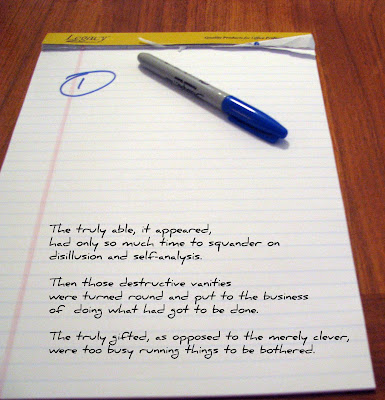 Legacy
1
The truly able, it appeared,
had only so much time to squander on
disillusion and self-analysis.
Then those destructive vanities
were turned round and put to the business
of doing what had got to be done.
The truly gifted, as opposed to the merely clever,
were too busy running things to be bothered.